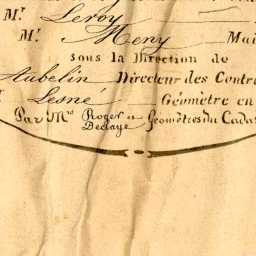 Mr. Leroy
Mr. Heny Mai
sous la Direction de
Aubelin Directeur des Contr
Lesné Géomètre en
Par Mrs Roger et
Delaye Géomètres du Cada